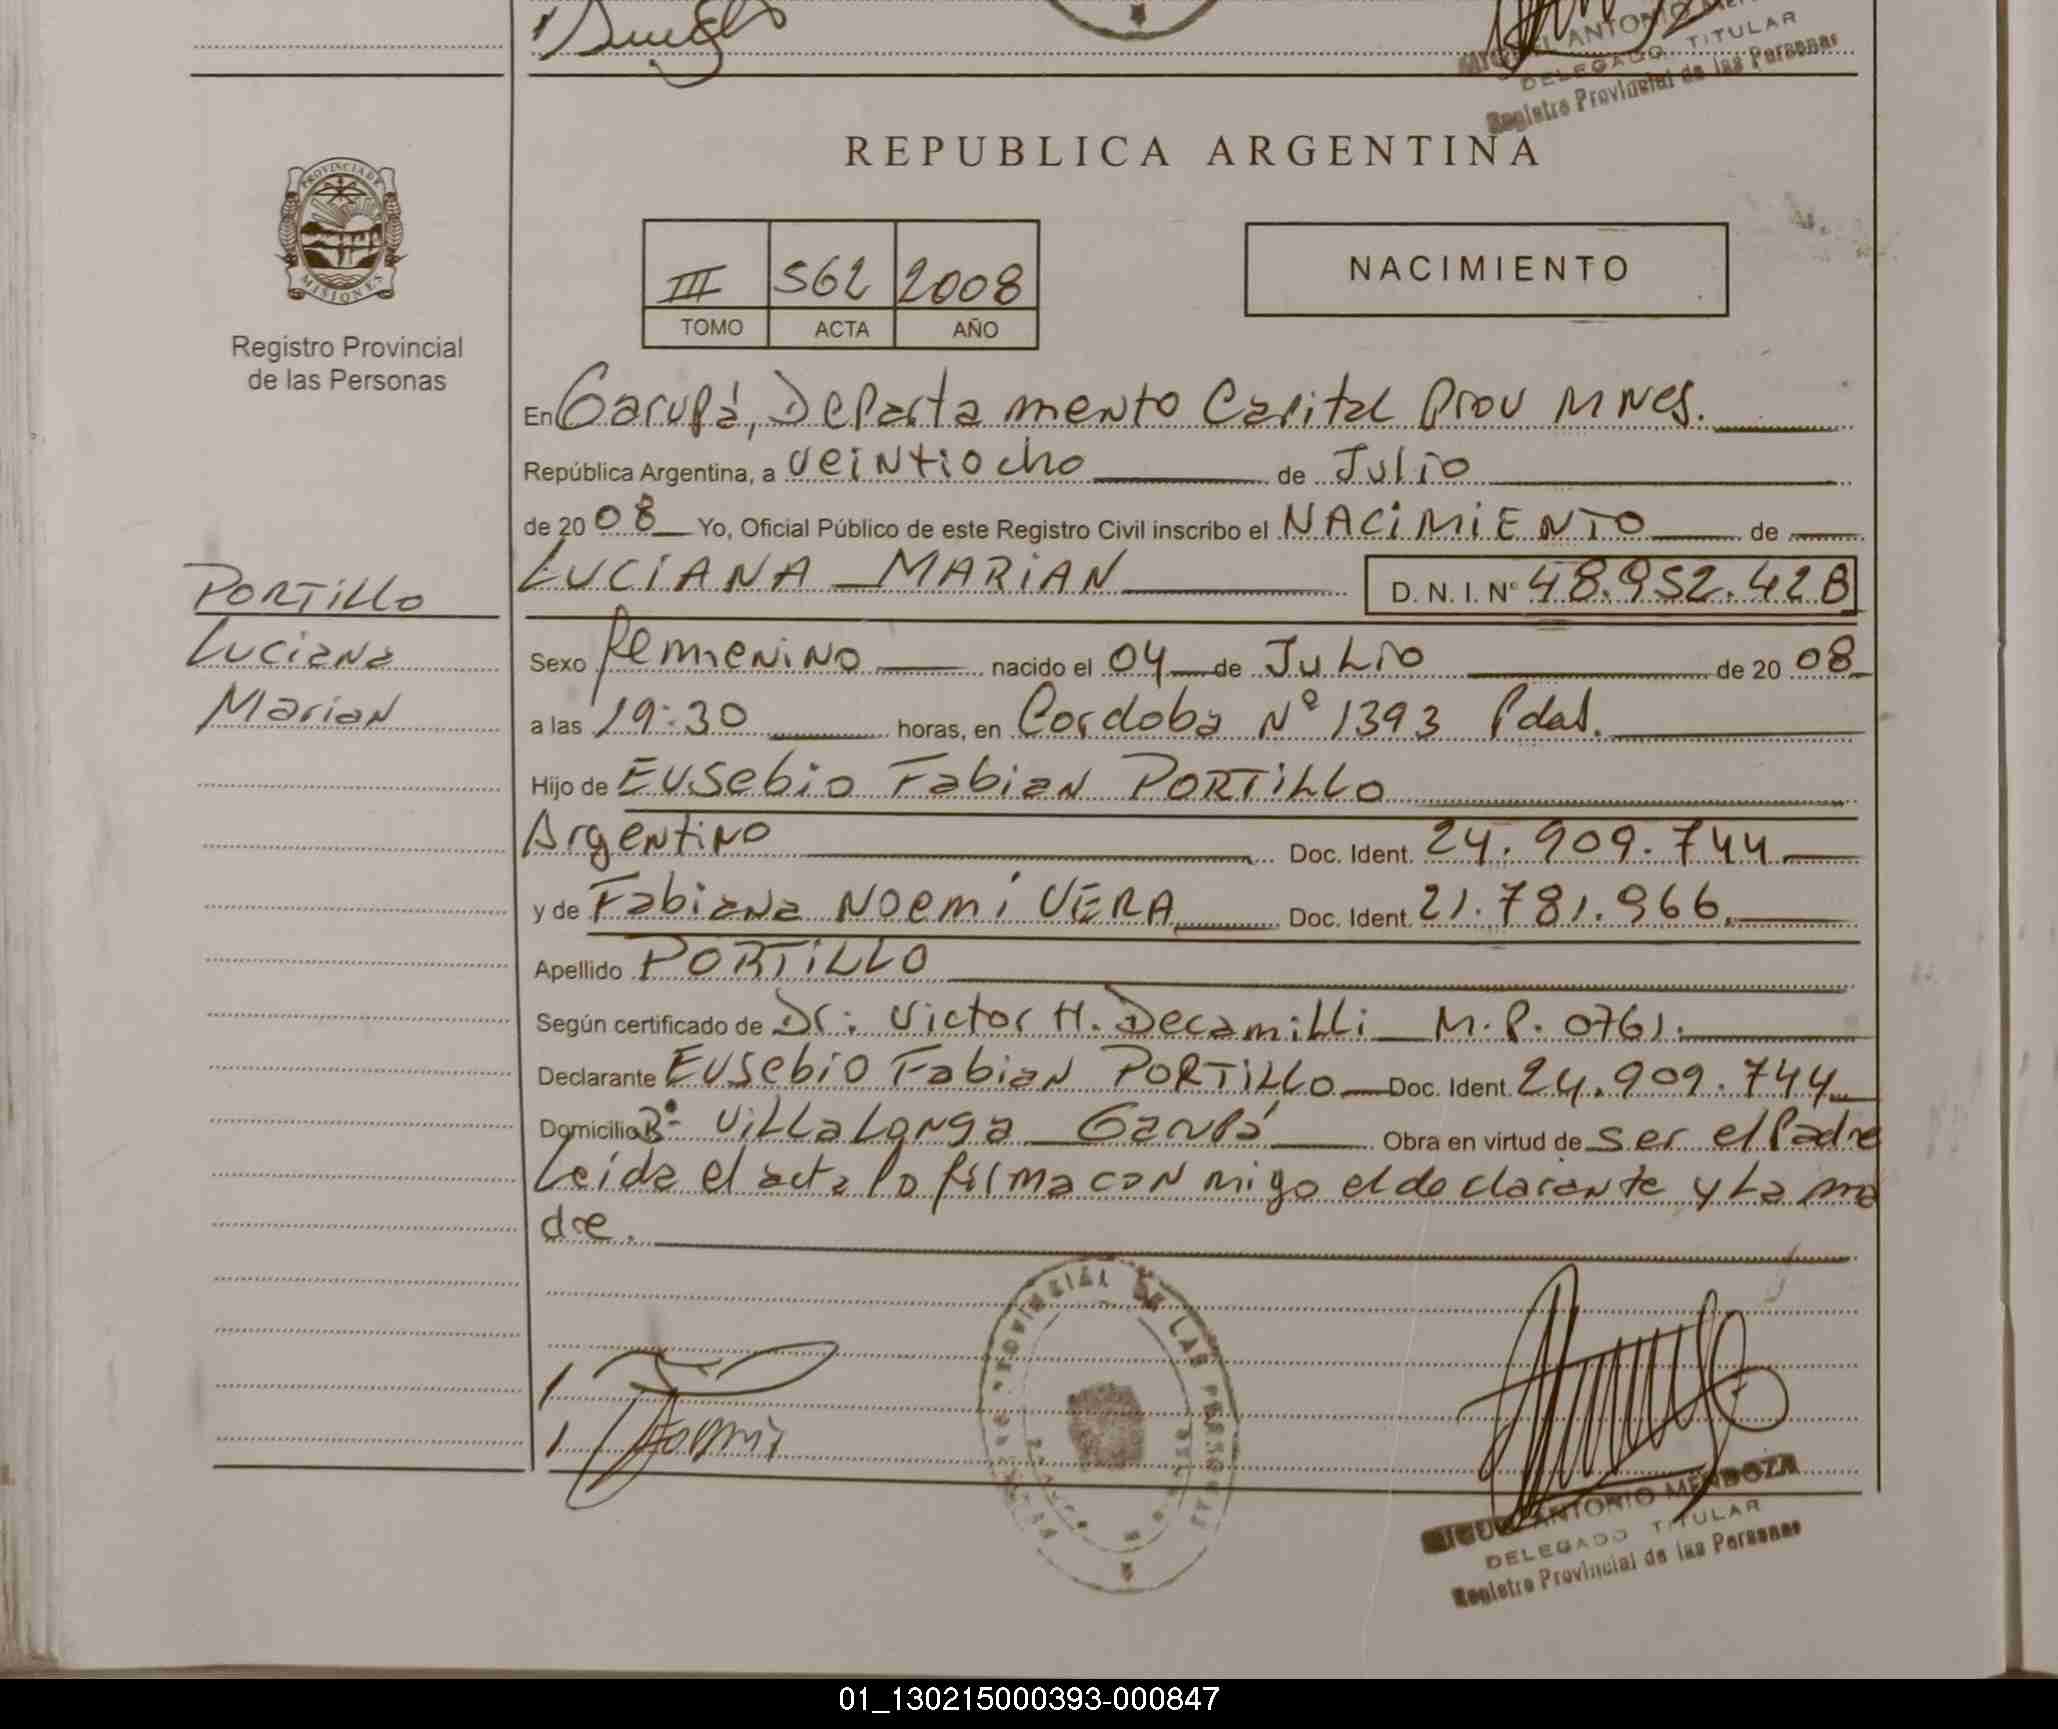 ANTONIO
DELEGADO TITULAR
Registro Provincial de las Personas
REPUBLICA ARGENTINA
PROVINCIA DE
MISIONES
Registro Provincial
de las Personas
III 562 2008
TOMO ACTA AÑO
NACIMIENTO
En Garupá, Departamento Capital Prov MNes.
República Argentina, a veintiocho de Julio
de 2008 Yo, Oficial Público de este Registro Civil inscribo el NACIMIENTO de
LUCIANA MARIAN D. N. I. Nº 48.952.428
PORTILLO
Luciana
Marian
Sexo femenino nacido el 04 de Julio de 2008
a las 19:30 horas, en Cordoba Nº 1393 Pdas.
Hijo de Eusebio Fabian PORTILLO
Argentino Doc. Ident. 24.909.744
y de Fabiana Noemí VERA Doc. Ident. 21.781.966.
Apellido PORTILLO
Según certificado de Dr: Victor H. Decamilli M.P. 0761.
Declarante Eusebio Fabian PORTILLO Doc. Ident. 24.909.744
Domicilio Bº Villalonga Garupá Obra en virtud de ser el Padre
Leida el acta lo firma con migo el declarante y La ma
dre.
PROVINCIAL DE LAS PERSONAS
ANTONIO MENDOZA
DELEGADO TITULAR
Registro Provincial de las Personas
01_130215000393-000847